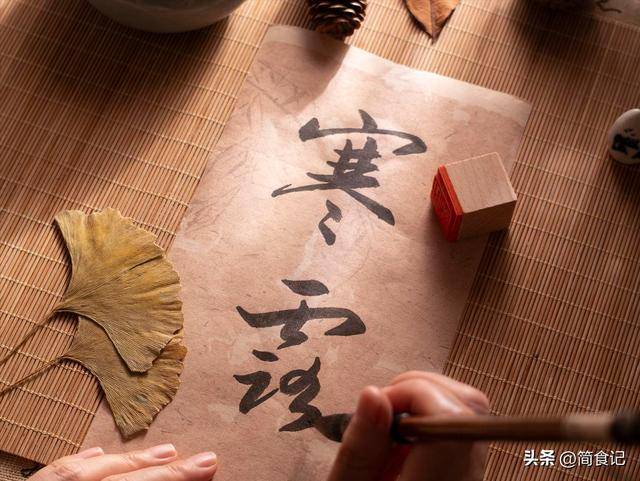 寒
露
头条 @简食记